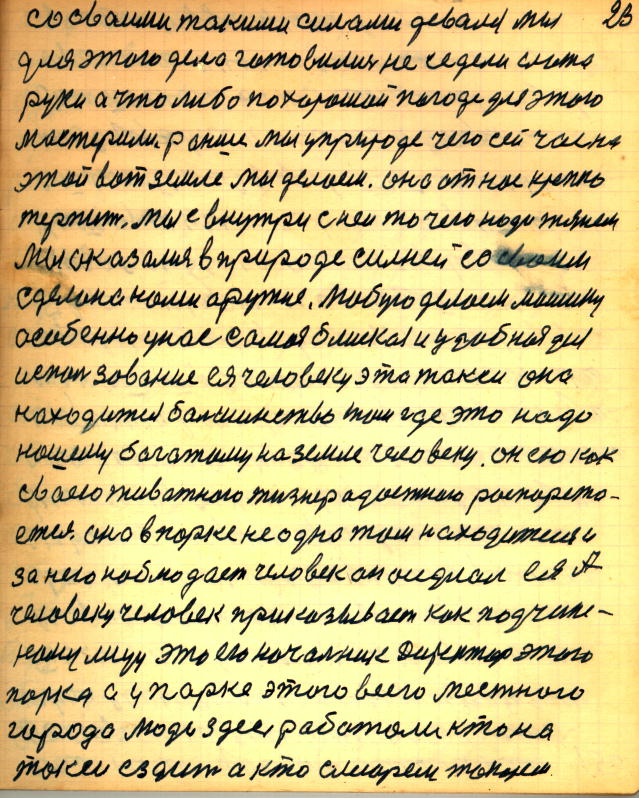 со сваими такими силами девалi мы 23
для этого дела готовилих не седели слота
руки а что либо похорошой погоде для этого
мастерили, раниш мы уприроде чего сей час на
этой вот земле мы делаем. она от нас крепко
терпит, мы с внутри с неи то чего надо тянем
Мы оказалия в природе силней со своим
сделона нами аружие, любую делаем машину
особенно у нас самоя блиская и удобная для
испол зование ся человеку эта такси она
находится балшинство там где это надо
ношему богатому на земле человеку. он ею как
сваего живатного жизнерадостного распоряжо-
ется. оно в парке не одно там находится и
за него наблюдает человек он оседлал ея А
человеку человек приказывает как подчине-
ному лицу это его началник Директор этого
парка а у парке этого всего местного
города люди здесь работали кто на
такси ездит а кто слисарем